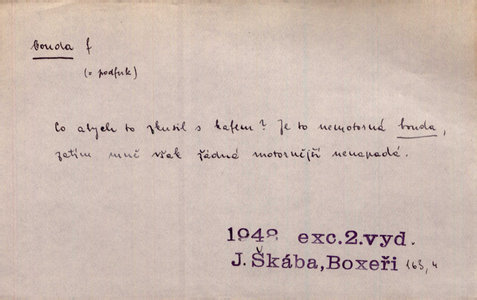 bouda f
(= podfuk)
Co abych to zkusil s kafem? Je to nemotorná bouda,
zatím mně však žádná motornější nenapadá.
1948 exc.2.vyd.
J. Škába, Boxeři 163,4